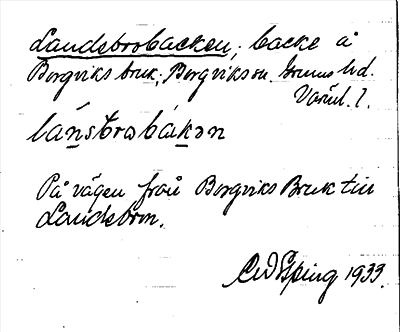 Landsbrobacken; backe å
Borgviks bruk; Borgvik sn. Grums hd.
Värml. l.
lánsbrobákən
På vägen från Borgviks Bruk till
Landsbron.
1933.